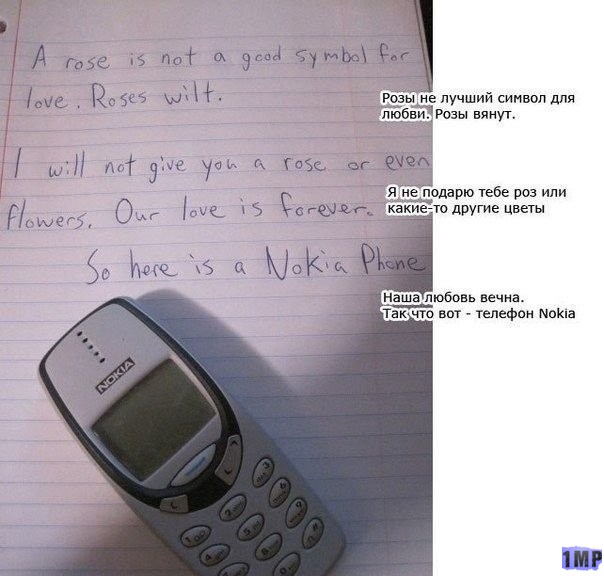 A rose is not a good symbol for
love. Roses wilt.
Розы не лучший символ для
любви. Розы вянут.
I will not give you a rose or even
flowers. Our love is forever.
Я не подарю тебе роз или
какие-то другие цветы
So here is a Nokia Phone
Наша любовь вечна.
Так что вот - телефон Nokia
NOKIA
1MP